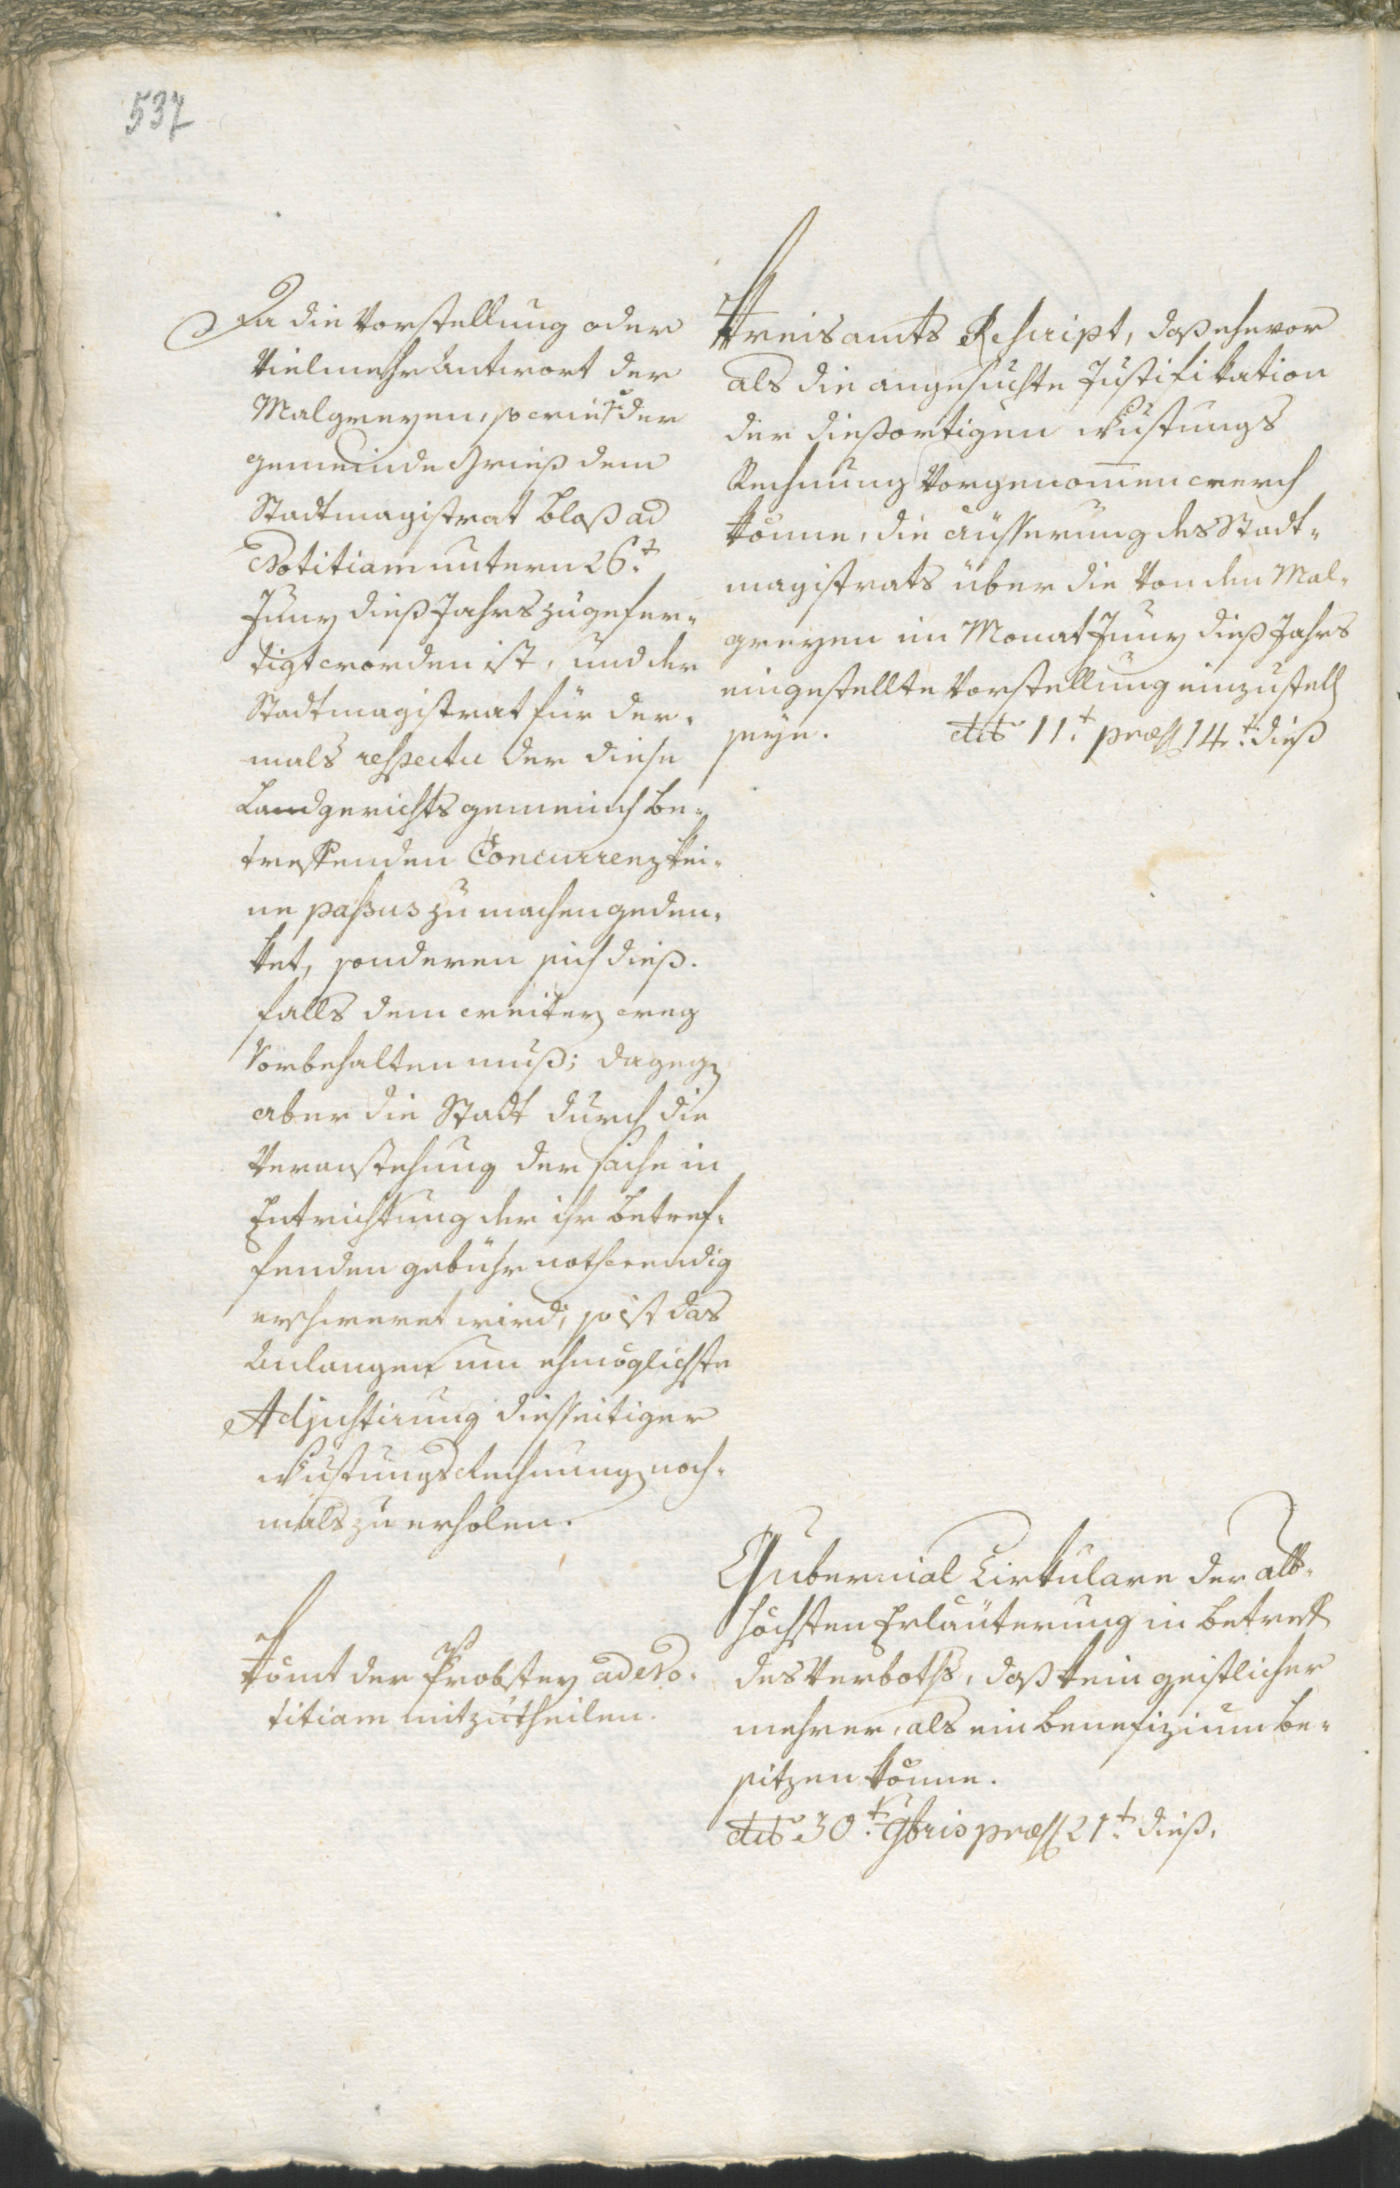 537
Da die Vorstellung oder
vielmehr Antwort der
Malgreyen, so wie der
gemeinde Grieß dem
Stadtmagistrat bloß ad
Notitiam untern 26.t
Juny dieß Jahrs zugefer-
tigt worden ist, und der
Stadtmagistrat für der-
mals respectu der diese
Landgerichtsgemeinden be-
treffenden Concurrenz kei-
ne passus zu machen geden-
ket, sonderen sich dieß-
falls den weiteren weg
vorbehalten muß; dagegen
aber die Stadt durch die
Veranstehung der sache in
Entrichtung der ihr betref-
fenden gebühr nothwendig
erschweret wird, so ist das
Anlangen um ehmöglichste
Adjustirung diesseitiger
Wustungs Rechnung noch-
mals zu erholen.
Kömt der Probstey ad No-
titiam mitzutheilen.
Kreisamts Rescript, daß ehevor
als die angesuchte Justifikation
der dießortigen Wustungs
Rechnung vorgenommen werden
könne, die äusserung des Stadt-
magistrats über die von den Mal-
greyen im Monat Juny dieß Jahrs
eingestellte Vorstellung einzustellen
seye. ddo 11.t præs 14.t dieß
Gubernial Cirkulare der aller-
höchsten Erläuterung in betreff
des Verboths, daß kein geistlicher
mehrer, als ein benefizium be-
sitzen könne.
ddo 30.t 9bris præs 21.t dieß.